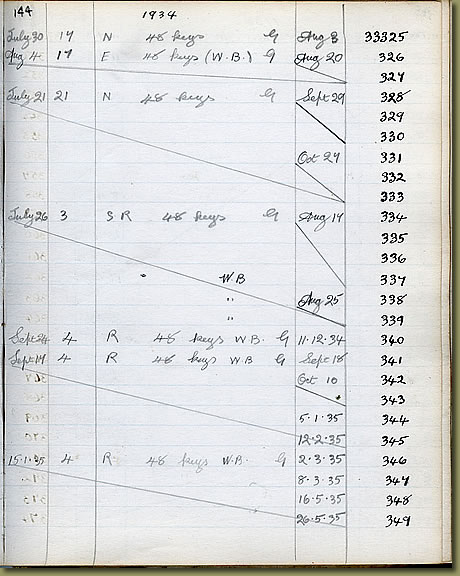 144 1934
July 30 17 N 48 keys G Aug 8 33325
Aug 4 17 E 48 keys (W.B.) G Aug 20 326
327
July 21 21 N 48 keys G Sept 29 328
329
330
Oct 27 331
332
333
July 26 3 S R 48 keys G Aug 17 334
335
336
" W.B 337
" Aug 25 338
" 339
Sept 24 4 R 48 keys W.B. G 11.12.34 340
Sept 14 4 R 48 keys W.B G Sept 18 341
Oct 10 342
343
5.1.35 344
12.2.35 345
15.1.35 4 R 48 keys W.B. G 2.3.35 346
8.3.35 347
16.5.35 348
26.5.35 349